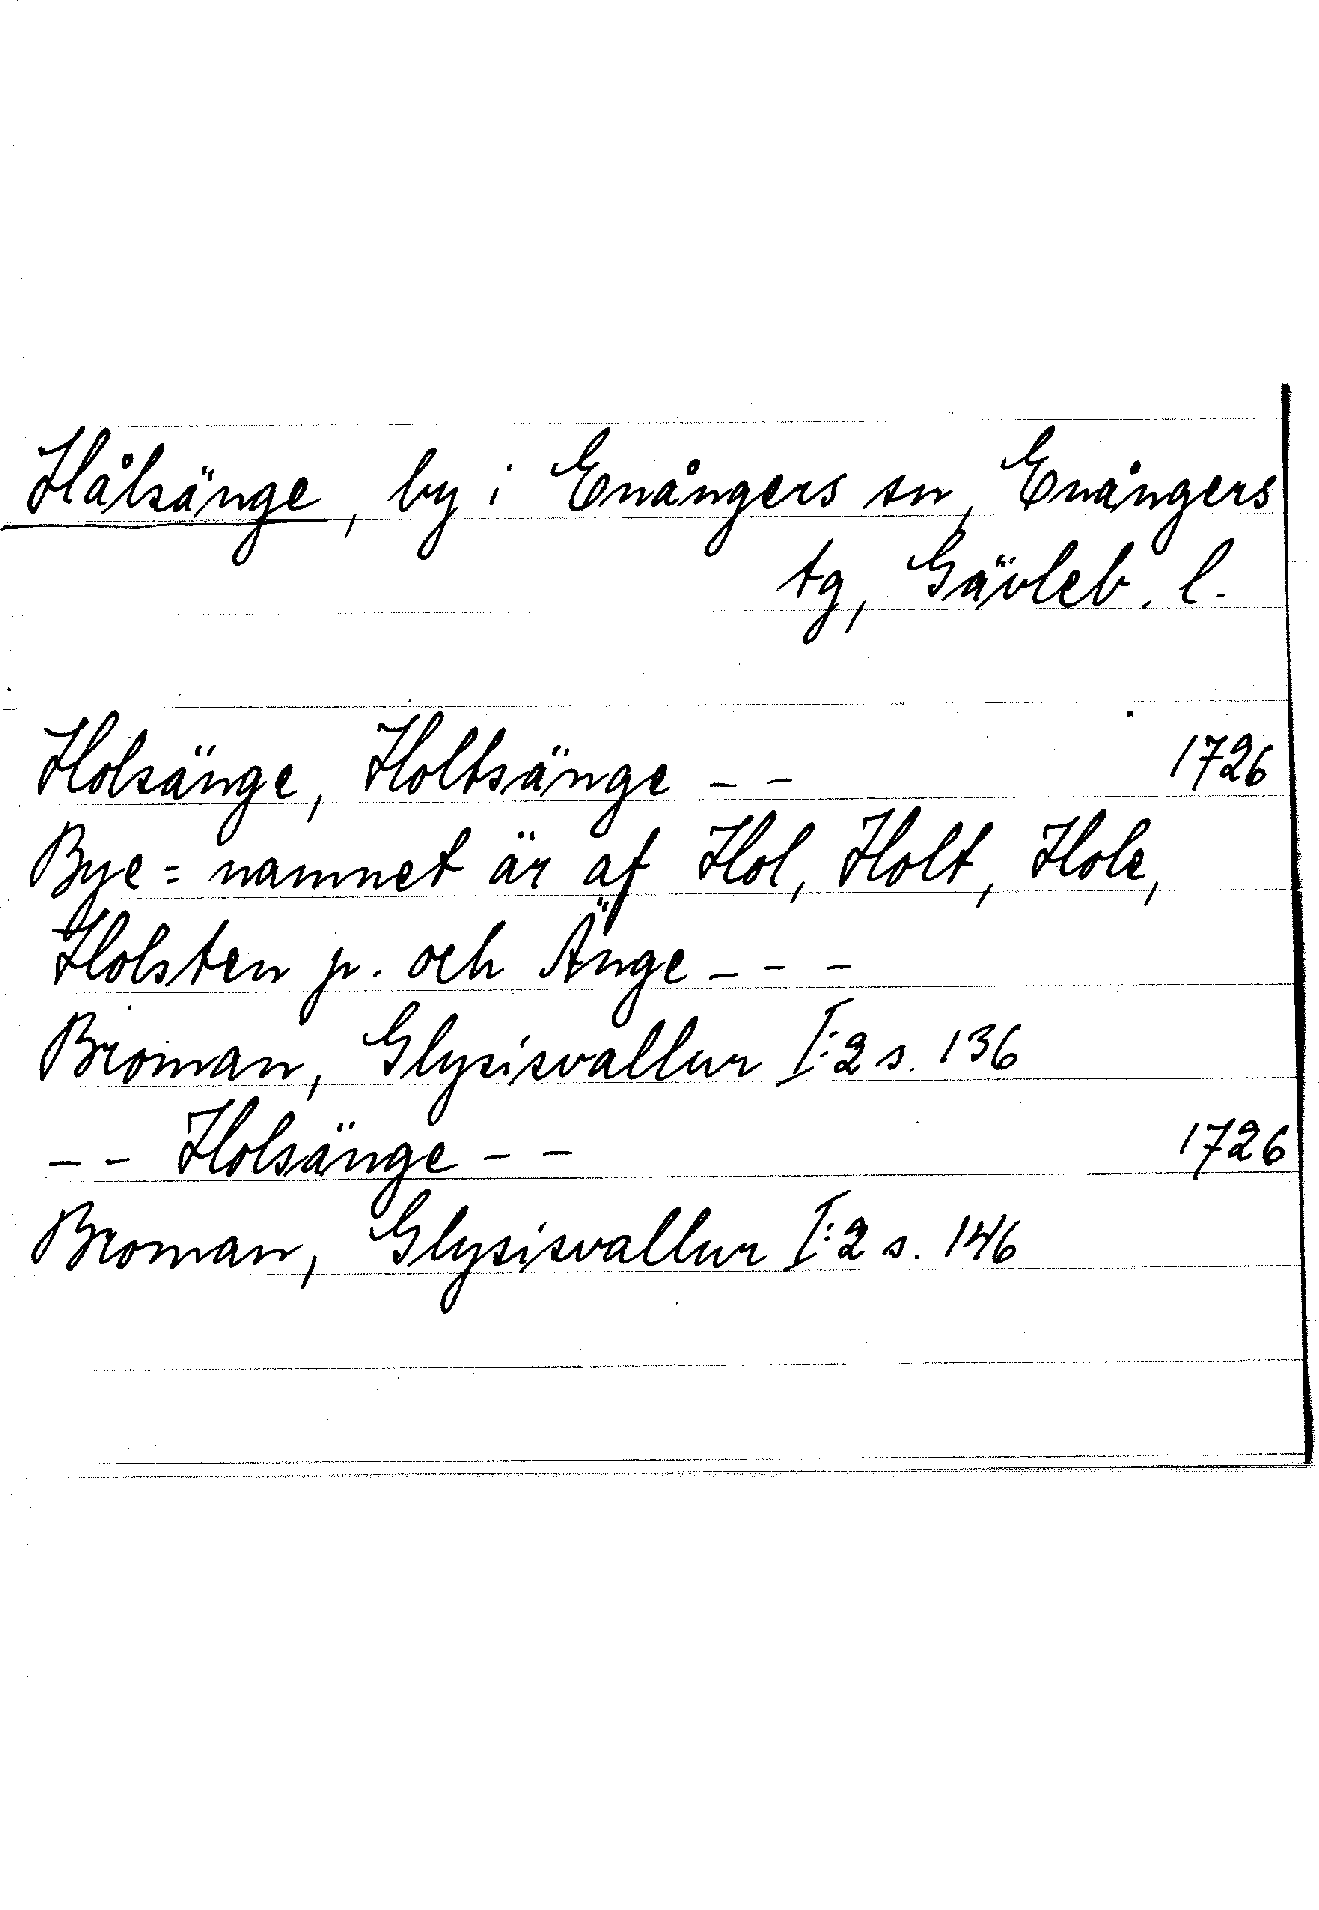 Hålsänge, by i Enångers sn, Enångers
tg, Gävleb. l.
Holsänge, Holtsänge - - 1726
Bye= namnet är af Hol, Holt, Hole,
Holsten p. och Änge - - -
Broman, Glysisvallur I:2 s. 136
- - Holsänge - - 1726
Broman, Glysisvallur I:2 s. 146